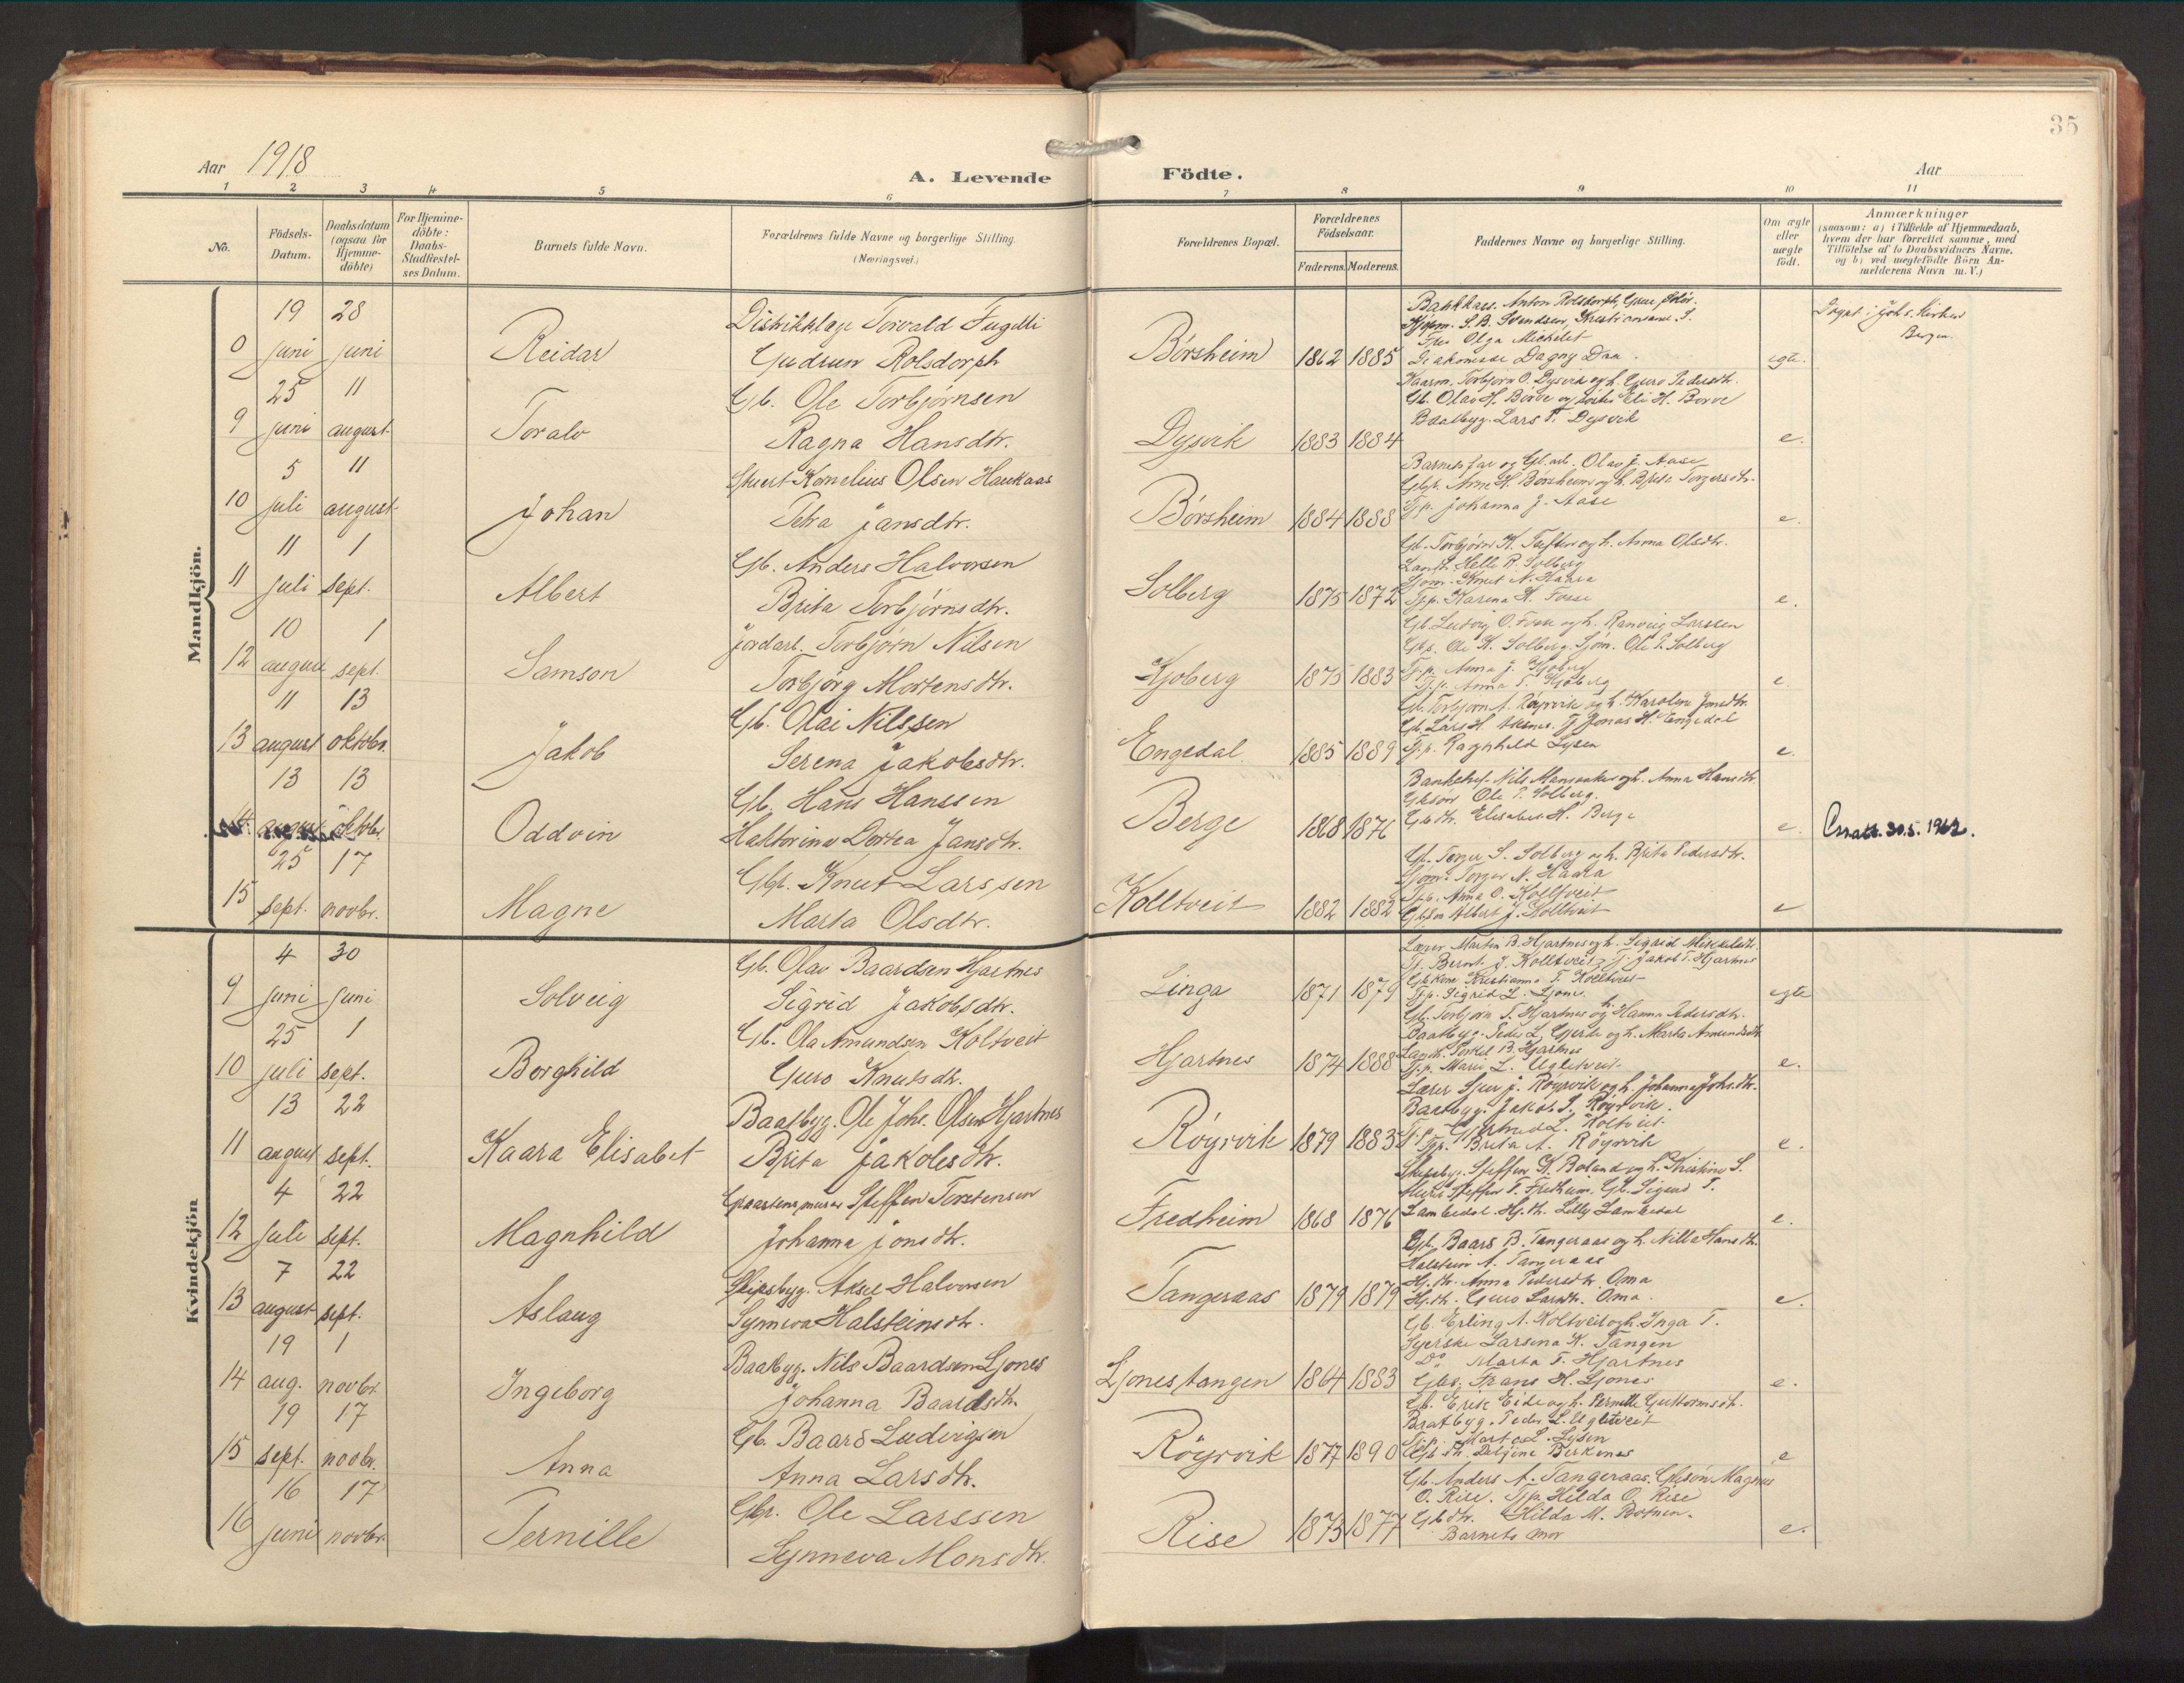 35
Aar 1918
A. Levende Födte.
Aar
1 2 3 4 5 6 7 8 9 10 11
No.
Födsels-Datum.
Daabsdatum (ogsaa for Hjemme-döbte)
For Hjemme-döbte: Daabs-Stadfæstel-ses Datum.
Barnets fulde Navn.
Forældrenes fulde Navne og borgerlige Stilling. (Næringsvei.)
Forældrenes Bopæl.
Forældrenes Födselsaar.
Faderens. Moderens.
Faddernes Navne og borgerlige Stilling.
Om ægte eller uægte födt.
Anmærkninger
(saasom: a) i Tilfælde af Hjemmedaab, hvem der har forrettet samme, med Tilföielse af to Daabsvidners Navne, og b) ved uegtefödte Börn Anmelderens Navn m. V.)
Mandkjön.
0 19 juni 28 juni Reidar
Distriktslæge Torvald Fugelli
Gudrun Rolsdorph
Börsheim 1862 1885
Anton Rolsdorph,
S. B. Svendsen, Kristianssand S.
Frø Olga Michelet
Diakonisse Dagny Daa.
egte.
Döpt i Joh.s Kirken
Bergen
9 25 juni 11 august Toralv
Gb. Ole Torbjørnsen
Ragna Hansdtr.
Dysvik 1883 1884
Kaarm. Torbjørn O. Dysvik og h. Guro Pedersdtr.
Gb. Olav H. Børve og Eli H. Børve
Baatbyg. Lars T. Dysvik
e.
10 5 juli 11 august Johan
Kornelius Olsen Haukaas
Petra Jansdtr.
Børsheim 1884 1888
Barnets far og Gb. arb. Olav J. Aase
Gbr. Arne H. Børsheim og h. Brita Torgersdtr.
Tj.p. Johanna J. Aase
e.
11 11 juli 1 sept. Albert
Gb. Anders Halvorsen
Brita Torbjørnsdtr.
Solberg 1875 1872
Gb. Torbjørn K. Tuften og h. Anna Olsdtr.
Helle R. Solberg
Sjøm. Knut N. Haara
Tj.p. Karina K. Fosse
e.
12 10 august 1 sept. Samson
Jordarb. Torbjørn Nilsen
Torbjørg Mortensdtr.
Kjoberg 1875 1883
Gb. Ludvig O. Fosse og h. Ranveig Larssen
Ole K. Solberg. Sjøm. Ole P. Solberg
Tj.p. Anna J. Kjoberg
Tj.p. Anna T. Kjoberg
e.
13 11 august 13 oktobr. Jakob
Gb. Olai Nilssen
Serena Jakobsdtr.
Engedal. 1885 1889
Gb. Torbjørn A. Røyrvik og h. Karolina Jonsdtr.
Gb. Lars H. Jonas H. Engedal
Tj.p. Ragnhild Lysen
e.
14 13 august 13 oktobr. Oddvin
Gb. Hans Hanssen
Haktorine Dortea Jansdtr.
Berge 1868 1876
Nils og h. Anna Hansdtr.
Gbsøn Ole P. Solberg.
Gbdtr. Elisabet H. Berge
e.
30.5.1962.
15 25 sept. 17 novbr. Magne
Gbr. Knut Larssen
Marta Olsdtr.
Kolltveit 1882 1882
Gb. Torger S. Solberg og h. Brita Pedersdtr.
Sjøm. Torger N. Haara
Tj.p. Anna O. Kolltveit
Gbsøn Albert J. Kolltveit
e
Kvindekjön
9 4 juni 30 juni Solveig
Gb. Olav Baardsen Hjartnes
Sigrid Jakobsdtr.
Linga 1871 1879
Lærer Martin B. Hjartnes og h. Sigrid Mikkelsdtr.
Tj. Bernt J. Kolltveit, Tj. Jakob T. Hjartnes
Gbkone Kristianna T. Kolltveit
Tj.p. Sigrid L. Ljones.
egte
10 25 juli 1 sept. Borghild
Gb. Ola Amundsen Koltveit
Guro Knutsdtr.
Hjartnes 1874 1888
Gb. Torbjørn T. Hjartnes og h. Hanna Pedersdtr.
Baatbyg. Peder L. Gjerde og h. Marta Amundsdtr.
Torkel B. Hjartnes
Tj.p. Marie L. Ugletveit
e.
11 13 august 22 sept. Kaara Elisabet
Baatbyg. Ole Johs. Olsen Hjartnes
Brita Jakobsdtr.
Røyrvik 1879 1883
Lærer Sjur J. Røyrvik og h. Johanna Johs.dtr.
Baatbyg. Jakob S. Røyrvik.
Tj.p. Gjertrud L. Koltveit
Tj.p. Brita A. Røyrvik
e.
12 4 juli 22 sept. Magnhild
Graastensmurer Steffen Torstensen
Johanna Jonsdtr.
Fredheim 1868 1876
Skipsbyg. Steffen K. Boland og h. Kristine S.
Murer Steffen T. Fredheim. Gb. Sigurd T.
Lambedal. Hj.dtr. Lilly Lambedal
e.
13 7 august 22 sept. Aslaug
Skipsbyg. Aksel Halvorsen
Synneva Halsteinsdtr.
Tangeraas 1879 1879
Gb. Baard B. Tangeraas og h. Nilla Hansdtr.
Halstein A. Tangeraas
Hj.dtr. Anna Pedersdtr. Oma
Hj.dtr. Guro Larsdtr. Oma.
e.
14 19 aug. 1 novbr. Ingeborg
Baatbyg. Nils Baardsen Ljones
Johanna Baardsdtr.
Ljonestangen 1864 1883
Gb. Erling A. Koltveit og h. Inga T.
Syerske Larsina K. Tangen
Do Marta T. Hjartnes
Frans H. Ljones
e.
15 19 sept. 17 novbr. Anna
Gb. Baard Ludvigsen
Anna Larsdtr.
Røyrvik 1877 1890
Gb. Erik Eide og h. Pernille Guttormsdtr.
Baatbyg. Peder L. Ugletveit
Tj.p. Marta L. Lysen
Gbdtr. Berkenes
e
16 16 juni 17 novbr. Pernille
Gbr. Ole Larssen
Synneva Monsdtr.
Rise 1873 1877
Gb. Anders A. Tangeraas. Gbsøn Magnus
O. Rise. Tj.p. Hilda O. Rise
Gbdtr. Hilda M. Botnen.
Barnets mor
e.